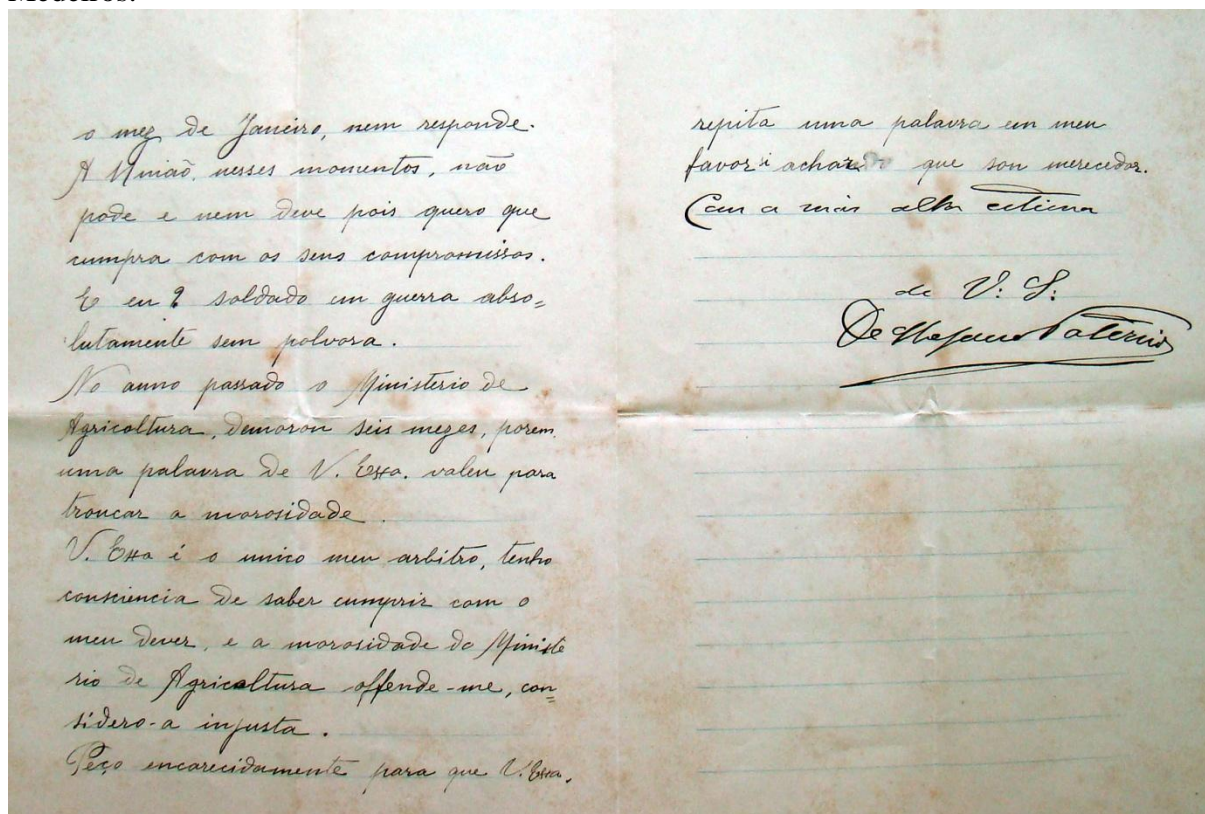 Medeiros.
o mez de Janeiro, nem responde.
A União, nesses momentos, não
pode e nem deve pois quero que
cumpra com os seus compromissos.
E eu? soldado em guerra abso=
lutamente sem polvora.
No anno passado o Ministerio de
Agricoltura, demorou seis mezes, porem
uma palavra de V. Exa. valeu para
troncar a morosidade.
V. Exa é o unico meu arbitro, tenho
consciencia de saber cumpriz com o
meu dever, e a morosidade do Ministe
rio de Agricultura offende-me, con=
sidero-a injusta.
Peço encarecidamente para que V. Exa.
repita uma palavra em meu
favor si achar que son merecedor.
Com a mais alta estima
de V. S.
De Stefano Paternó